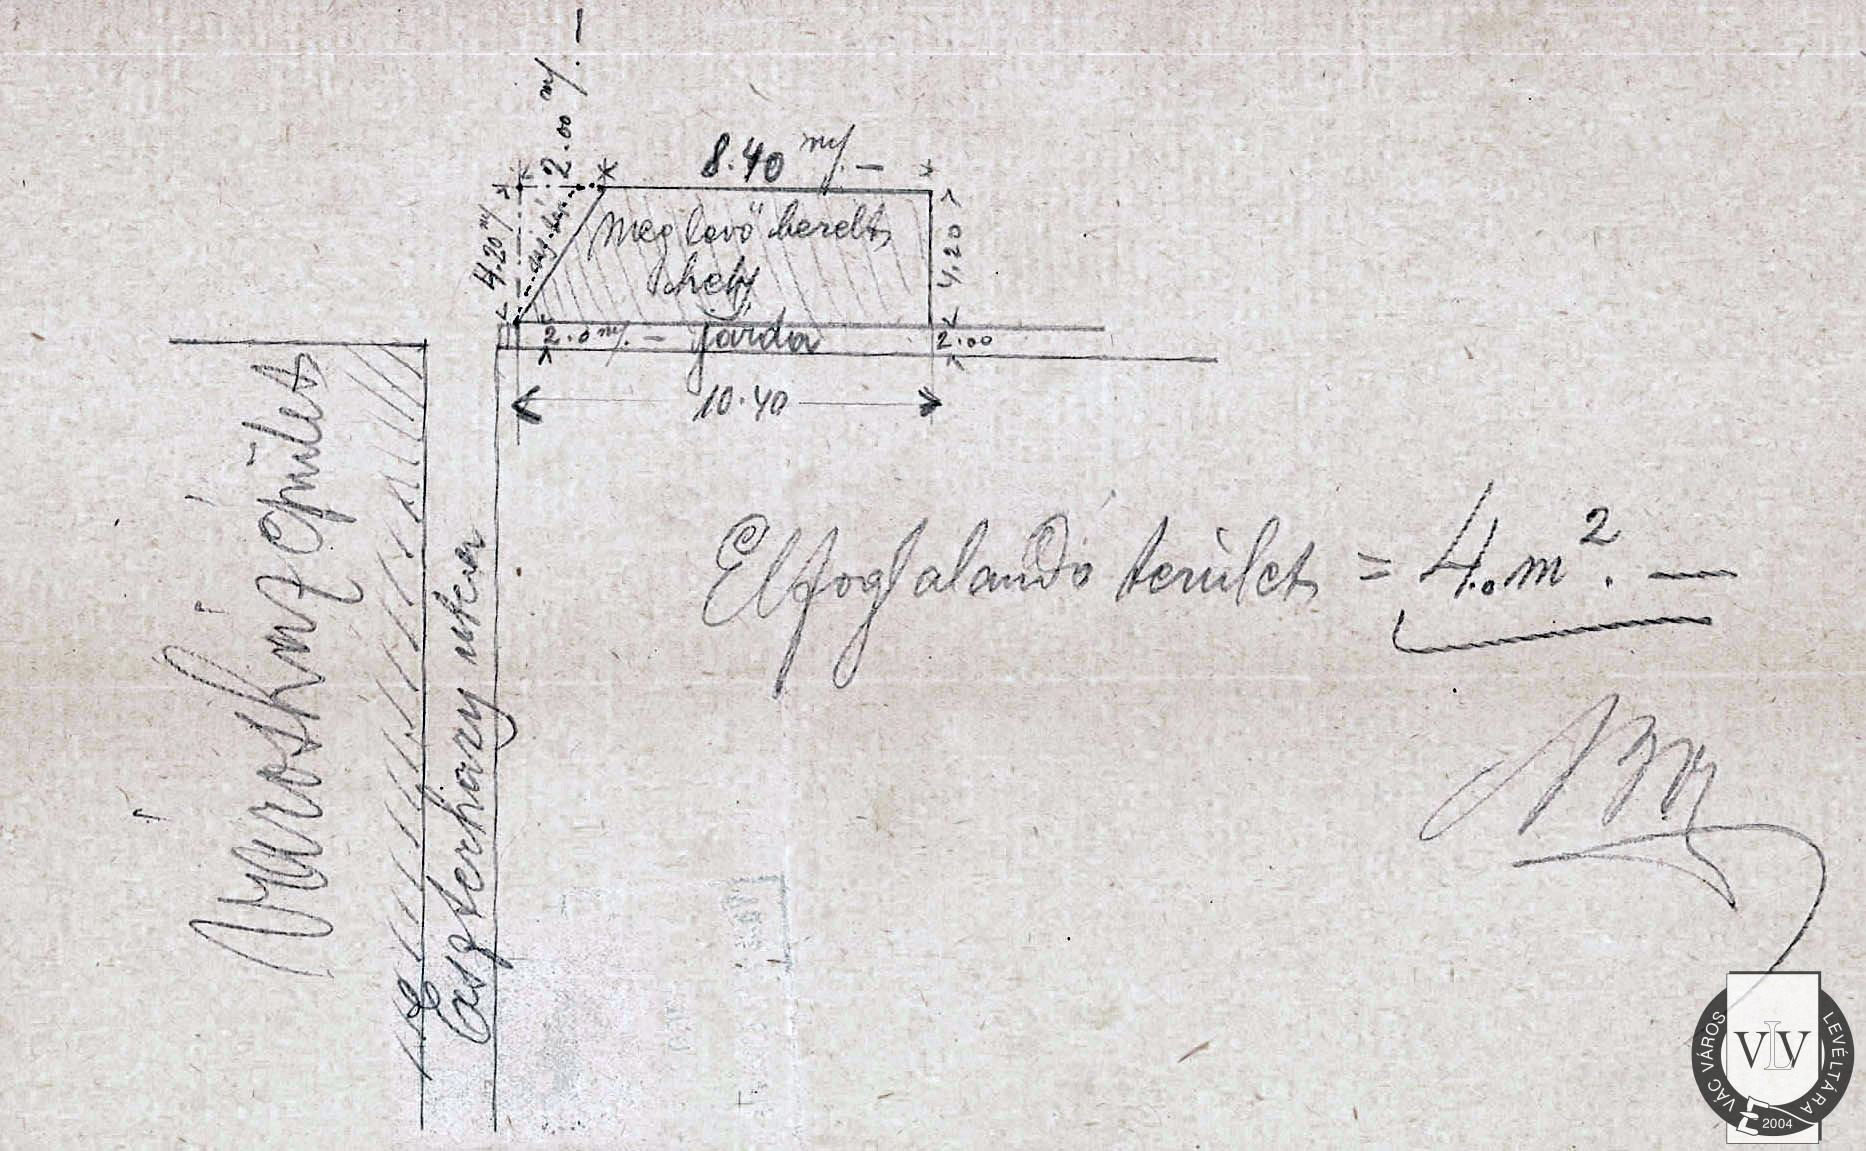 2.00 m/. –
8.40 m/. –
4.20 m/
Meglevő bérelt
hely
4.20
2.0 m/. – járda
2.00
10.40
Városház épület
Eszterházy utca
Elfoglalandó terület = 4. m². —
VÁC VÁROS LEVÉLTÁRA
VLV
2004